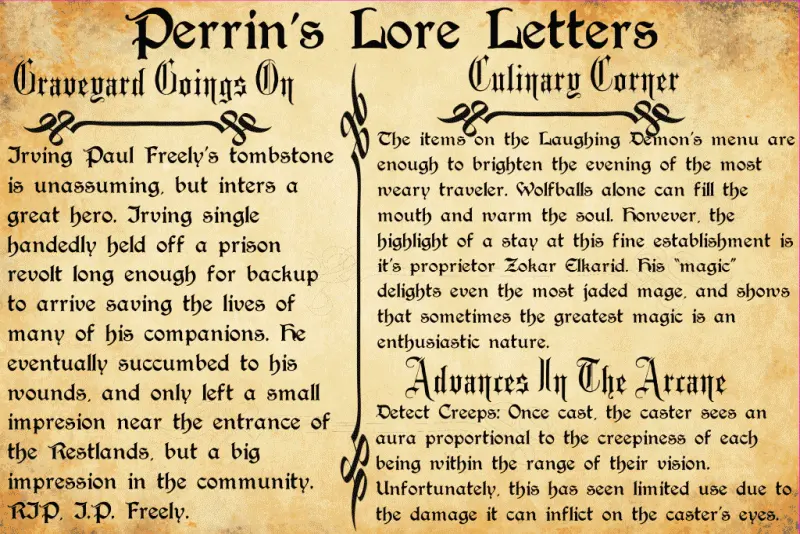 Perrin's Lore Letters
Graveyard Goings On
Irving Paul Freely's tombstone
is unassuming, but inters a
great hero. Irving single
handedly held off a prison
revolt long enough for backup
to arrive saving the lives of
many of his companions. He
eventually succumbed to his
wounds, and only left a small
impresion near the entrance of
the Restlands, but a big
impression in the community.
RIP, I.P. Freely.
Culinary Corner
The items on the Laughing Demon's menu are
enough to brighten the evening of the most
weary traveler. Wolfballs alone can fill the
mouth and warm the soul. However, the
highlight of a stay at this fine establishment is
it's proprietor Zokar Elkarid. His "magic"
delights even the most jaded mage, and shows
that sometimes the greatest magic is an
enthusiastic nature.
Advances In The Arcane
Detect Creeps: Once cast, the caster sees an
aura proportional to the creepiness of each
being within the range of their vision.
Unfortunately, this has seen limited use due to
the damage it can inflict on the caster's eyes.